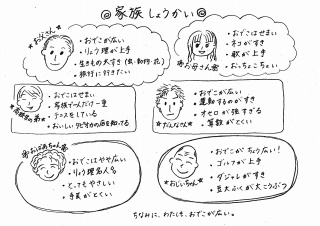 ◎家族しょうかい◎
★お父さん★
・おでこが広い
・りょう理が上手
・生きもの大すき(虫・動物・花)
・旅行に行きたい
★お母さん★
・おでこはせまい
・ネコがすき
・歌が上手
・おっちょこちょい
・おでこはせまい
・家族で一人だけ一重
・テニスをしている
・おいしいタピオカの店を知ってる
★だんなさん★
・おでこが広い
・運動するのがすき
・オセロが強すぎる
・算数がとくい
★おばあちゃん★
・おでこはやや広い
・りょう理名人
・とってもやさしい
・手芸がとくい
★おじいちゃん★
・おでこがちょう広い!
・ゴルフが上手
・ダジャレがすき
・豆大ふくが大こうぶつ
ちなみに、わたしも、おでこが広い。